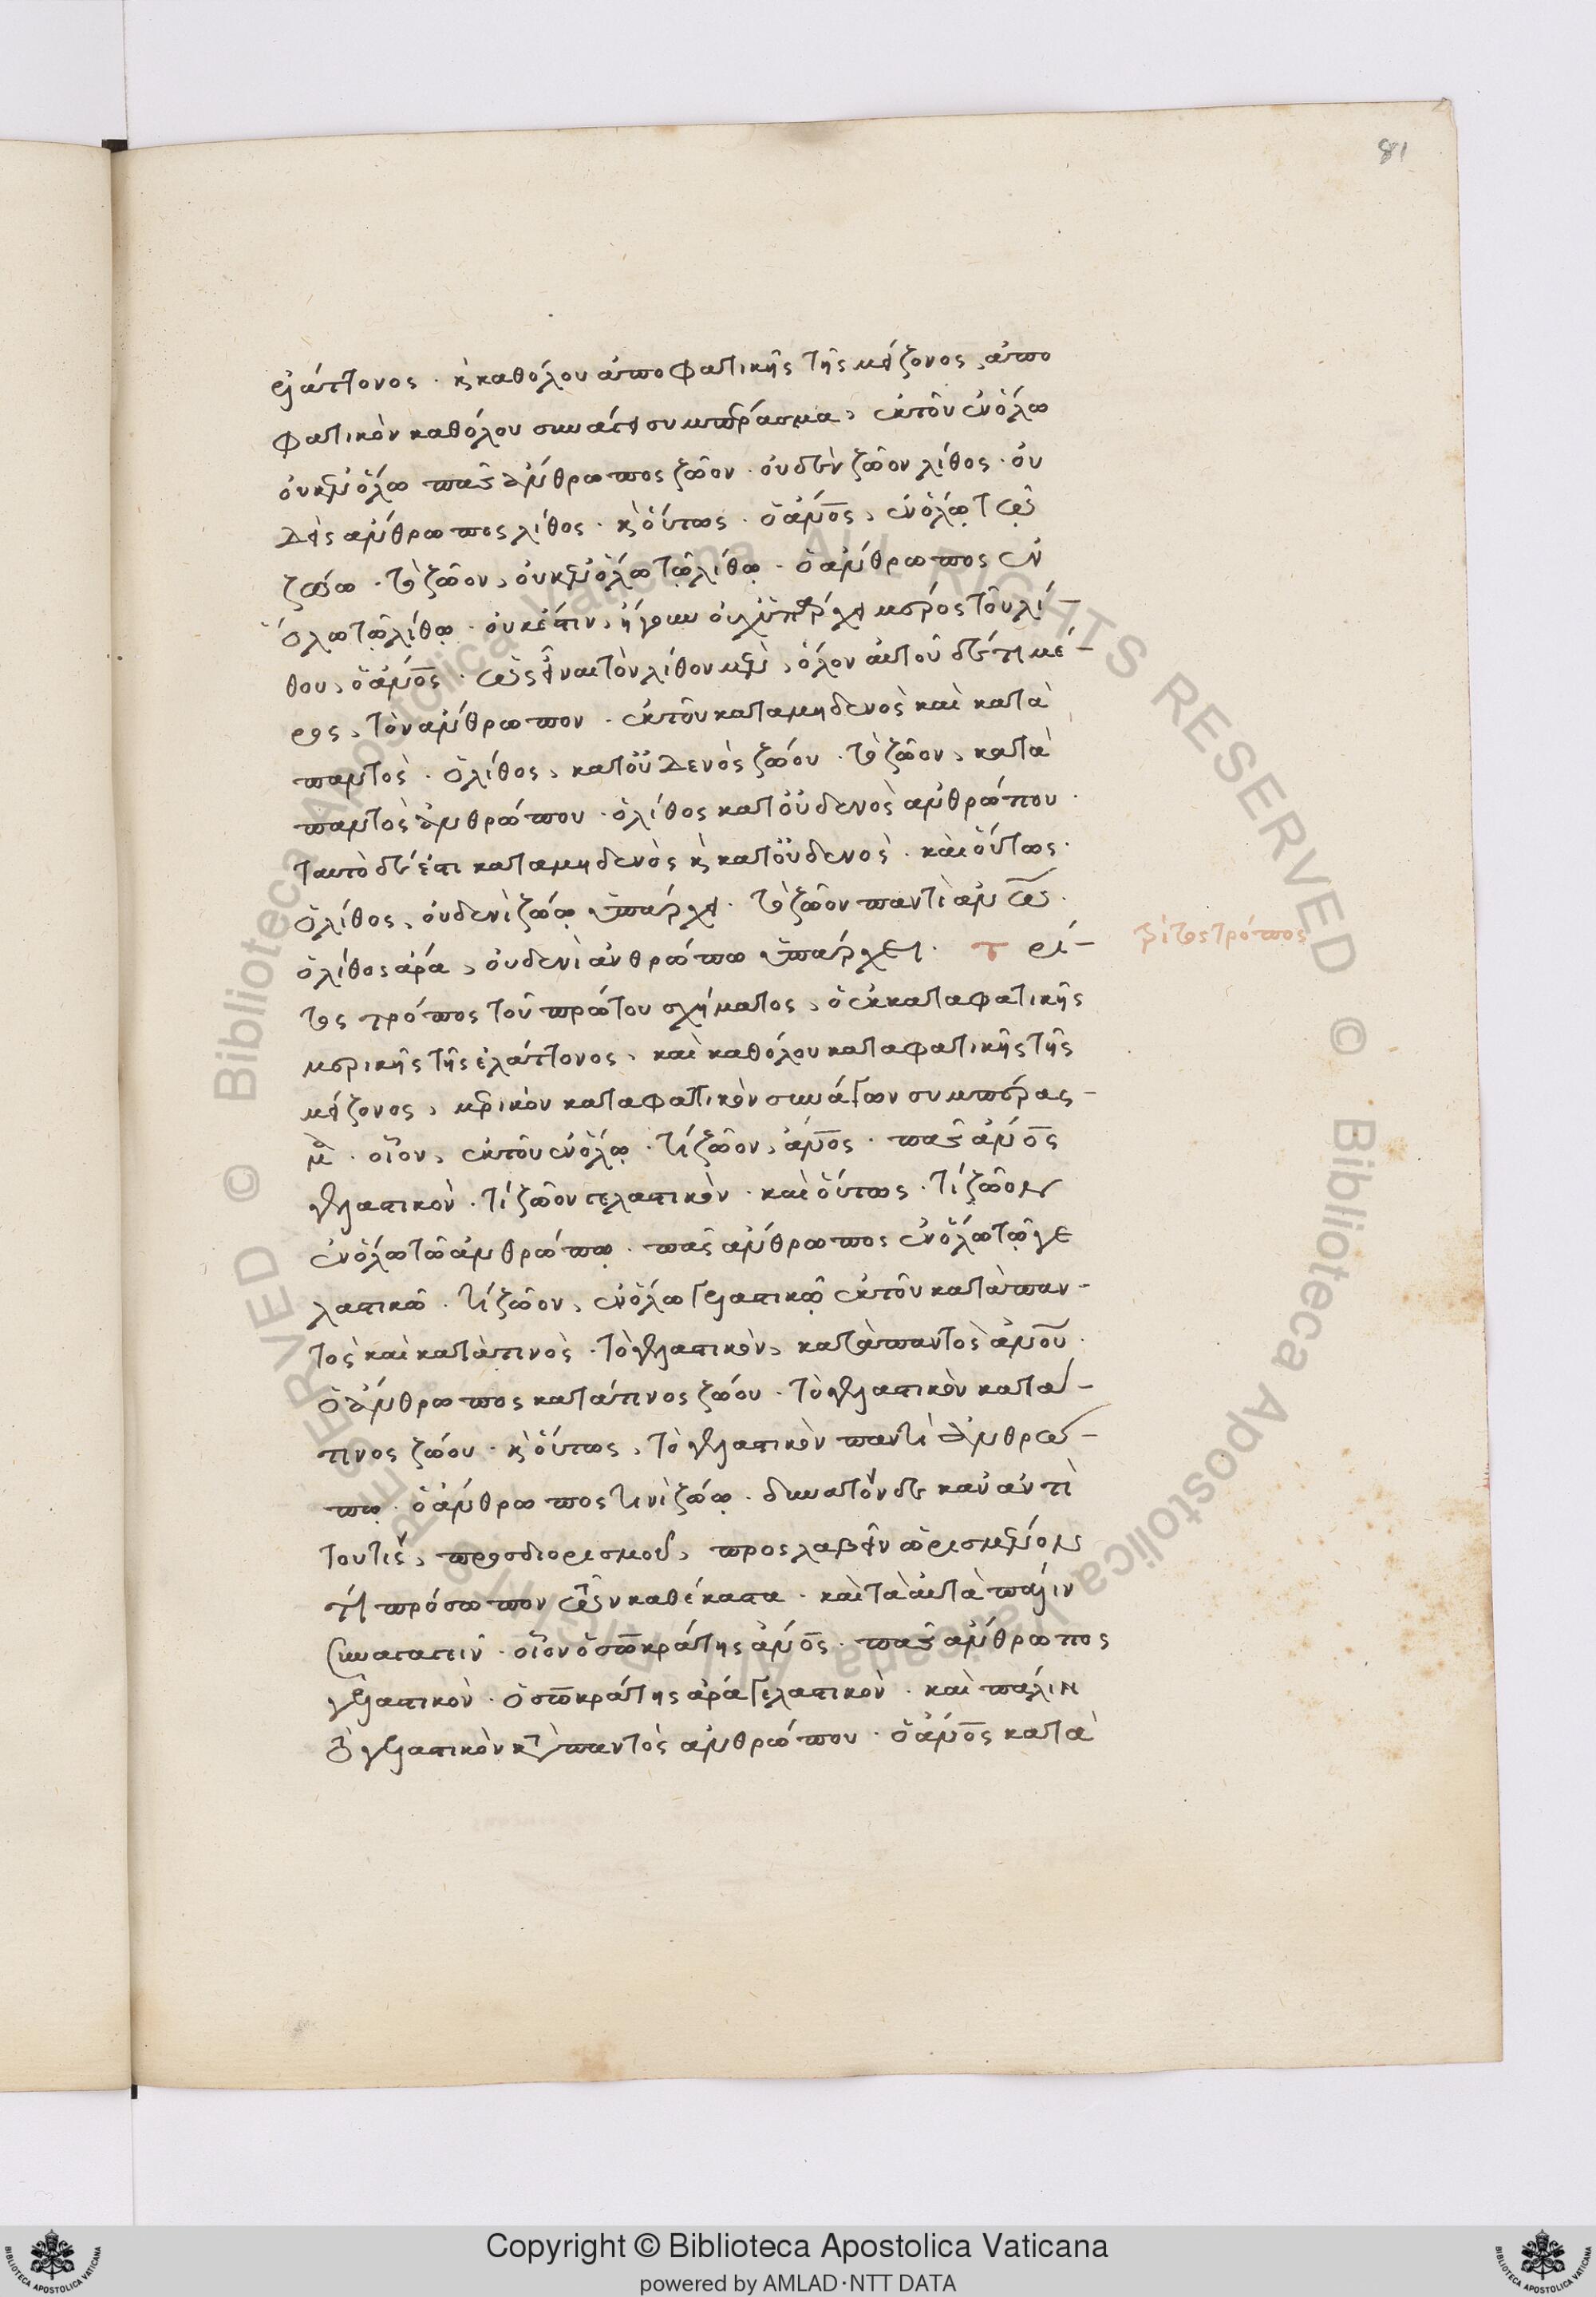 81
ἐλάττονος · κ καθόλου ἀποφατικῆς τῆς μείζονος, ἀπο
φατικὸν καθόλου συνάγει συμπέρασμα, ἐκ τοῦ ἐν ὅλω
οὐκ ἐν ὅλω πᾶς ἄνθρωπος ζῶον · οὐδὲν ζῶον λίθος · οὐ
δεὶς ἄνθρωπος λίθος · κ οὕτως · ὁ ἄνος, ἐν ὅλῳ τῷ
ζώω · τὸ ζῶον, οὐκ ἐν ὅλω τῷ λίθῳ · ὁ ἄνθρωπος ἐν
ὅλω τῷ λίθῳ · οὐκ ἔστιν, ἤγουν οὐχ ὑπάρχει μέρος τοῦ λί-
θου, ὁ ἄνος · εἶναι τὸν λίθον μὲν, ὅλον αὐτοῦ δὲ τι μέ-
ρος, τὸν ἄνθρωπον · ἐκ τοῦ κατα μηδενὸς καὶ κατὰ
παντὸς · ὁ λίθος, κατ οὐδενὸς ζώου · τὸ ζῶον, κατὰ
παντὸς ἀνθρώπου · ὁ λίθος κατ οὐδενὸς ἀνθρώπου ·
ταυτὸ δέ ἐστι κατα μηδενὸς κ κατ οὐδενὸς · καὶ οὕτως ·
ὁ λίθος, οὐδενὶ ζώῳ ὑπάρχει · τὸ ζῶον παντὶ ἀνω ·
ὁ λίθος ἄρα, οὐδενὶ ἀνθρώπω ὑπάρχει · τ ρί-
τρίτος τρόπος
τος τρόπος τοῦ πρώτου σχήματος, ὁ ἐκ καταφατικῆς
μερικῆς τῆς ἐλάττονος, καὶ καθόλου καταφατικῆς τῆς
μείζονος, μερικὸν καταφατικὸν συνάγων συμπέρασ-
μα · οἷον, ἐκ τοῦ ἐν ὅλῳ · τί ζῶον, ἄνος · πᾶς ἄνος
γελαστικὸν · τί ζῶον γελαστικὸν · καὶ οὕτως · τί ζῶον
ἐν ὅλω τῶ ἀνθρώπῳ · πᾶς ἄνθρωπος ἐν ὅλω τῷ γε
λαστικῶ · τί ζῶον, ἐν ὅλω γελαστικῷ ἐκ τοῦ κατὰ παν-
τὸς καὶ κατὰ τινὸς · τὸ γελαστικὸν, κατὰ παντὸς ἀνου ·
ὁ ἄνθρωπος κατά τινος ζώου · τὸ γελαστικὸν κατά-
τινος ζώου · κ οὕτως, τὸ γελαστικὸν παντὶ ἀνθρώ-
πῳ · ὁ ἄνθρωπος τινὶ ζώῳ · δυνατὸν δὲ κἂν ἀντὶ
τοῦ τις, προσδιορισμοῦ, προσλαβεῖν ὡρισμένον
τι πρόσωπον τῶν καθέκαστα · καὶ τὰ αὐτὰ πάλιν
συναπαστεῖν · οἷον ὁ σωκράτης ἄνος · πᾶς ἄνθρωπος
γελαστικὸν · ὁ σωκράτης ἄρα γελαστικὸν · καὶ πάλιν
τὸ γελαστικὸν κατὰ παντὸς ἀνθρώπου · ὁ ἄνος κατὰ
Copyright © Biblioteca Apostolica Vaticana
powered by AMLAD·NTT DATA